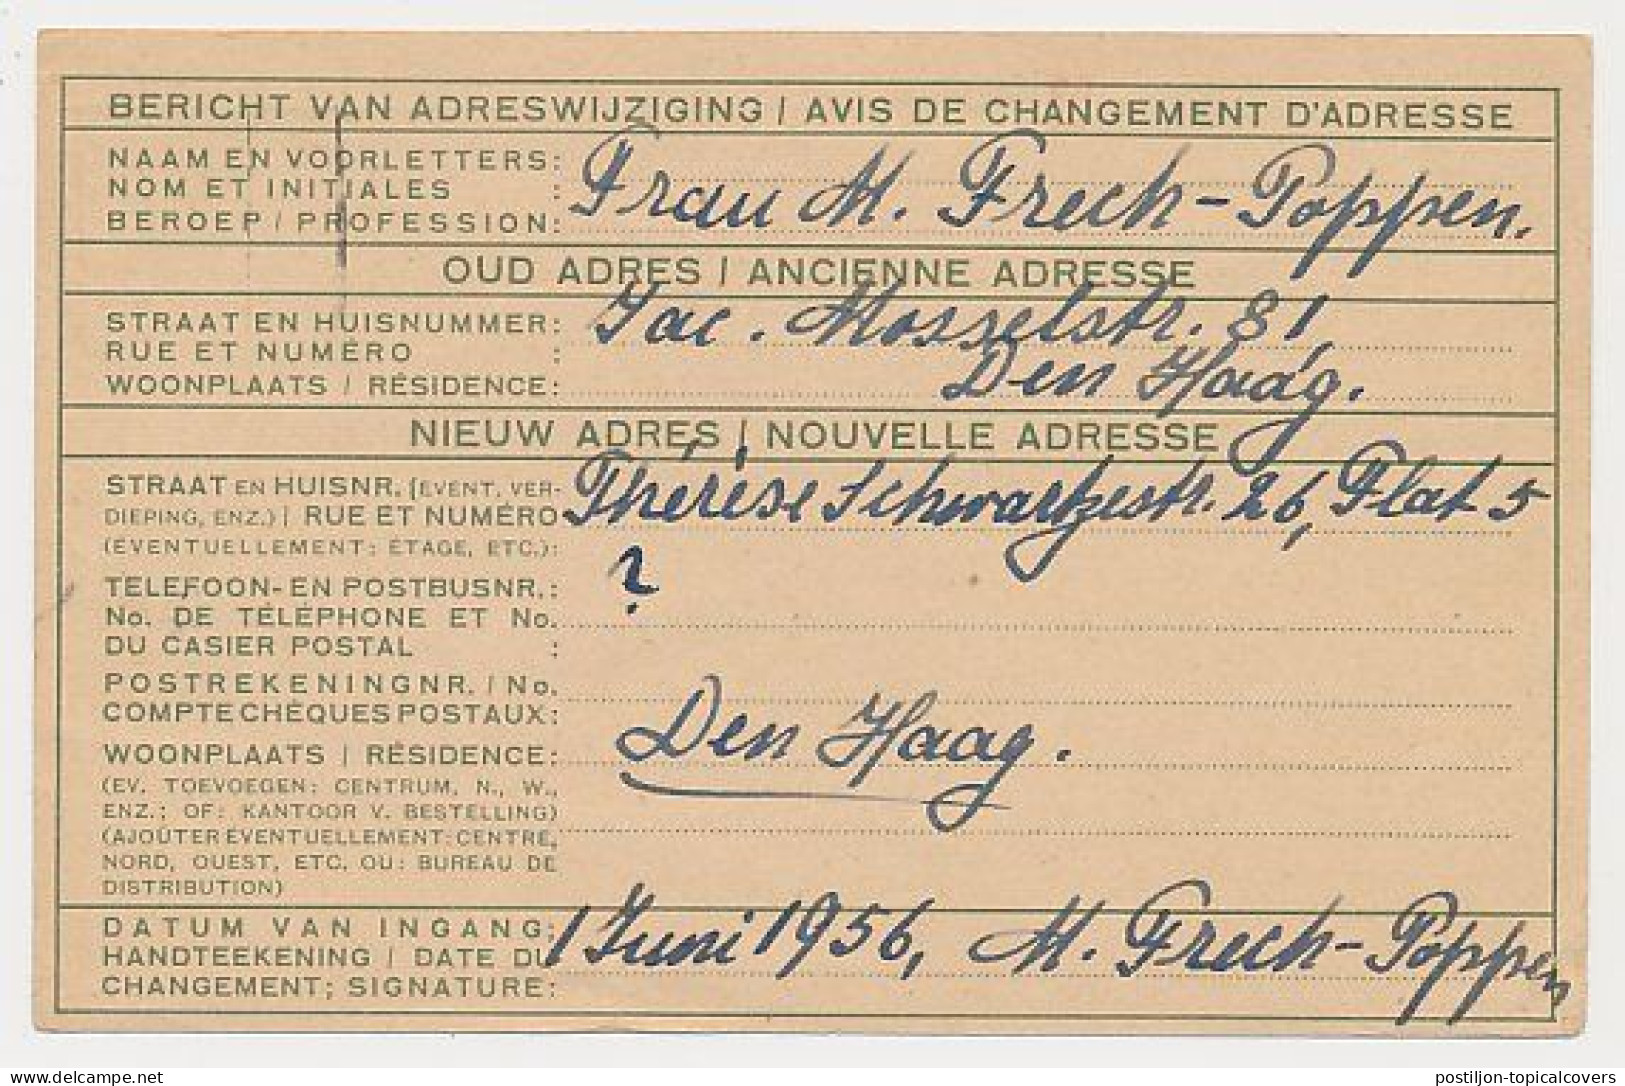 BERICHT VAN ADRESWIJZIGING / AVIS DE CHANGEMENT D'ADRESSE
NAAM EN VOORLETTERS:
NOM ET INITIALES :
BEROEP / PROFESSION:
Frau M. Frech-Poppen.
OUD ADRES / ANCIENNE ADRESSE
STRAAT EN HUISNUMMER: Jac. Mosselstr. 81,
RUE ET NUMÉRO :
WOONPLAATS / RÉSIDENCE: Den Haag.
NIEUW ADRES / NOUVELLE ADRESSE
STRAAT EN HUISNR. (EVENT. VER-
DIEPING, ENZ.) / RUE ET NUMÉRO
(ÉVENTUELLEMENT: ÉTAGE, ETC.):
Thérèse Schwartzestr. 26, Flat 5
TELEFOON- EN POSTBUSNR.: ?
No. DE TÉLÉPHONE ET No.
DU CASIER POSTAL :
POSTREKENINGNR. / No.
COMPTE CHÈQUES POSTAUX:
WOONPLAATS / RÉSIDENCE: Den Haag.
(EV. TOEVOEGEN: CENTRUM, N., W.,
ENZ.; OF: KANTOOR V. BESTELLING)
(AJOUTER ÉVENTUELLEMENT: CENTRE,
NORD, OUEST, ETC. OU: BUREAU DE
DISTRIBUTION)
DATUM VAN INGANG:
HANDTEEKENING / DATE DU
CHANGEMENT; SIGNATURE:
1 Juni 1956, M. Frech-Poppen
www.delcampe.net
postiljon-topicalcovers